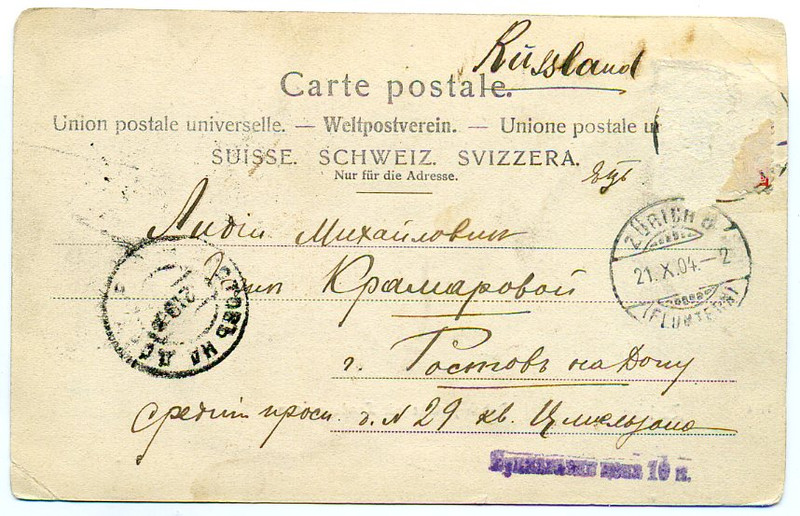 Russland
Carte postale.
Union postale universelle. — Weltpostverein. — Unione postale un
SUISSE. SCHWEIZ. SVIZZERA.
Nur für die Adresse.
Лидіи Михайловнѣ
Крамаровой
г. Ростовъ на Дону
Средній просп. д. N 29 кв.
ZÜRICH
21.X.04.–2
(FLUNTERN)
РОСТОВЪ НА Д.
10 к.